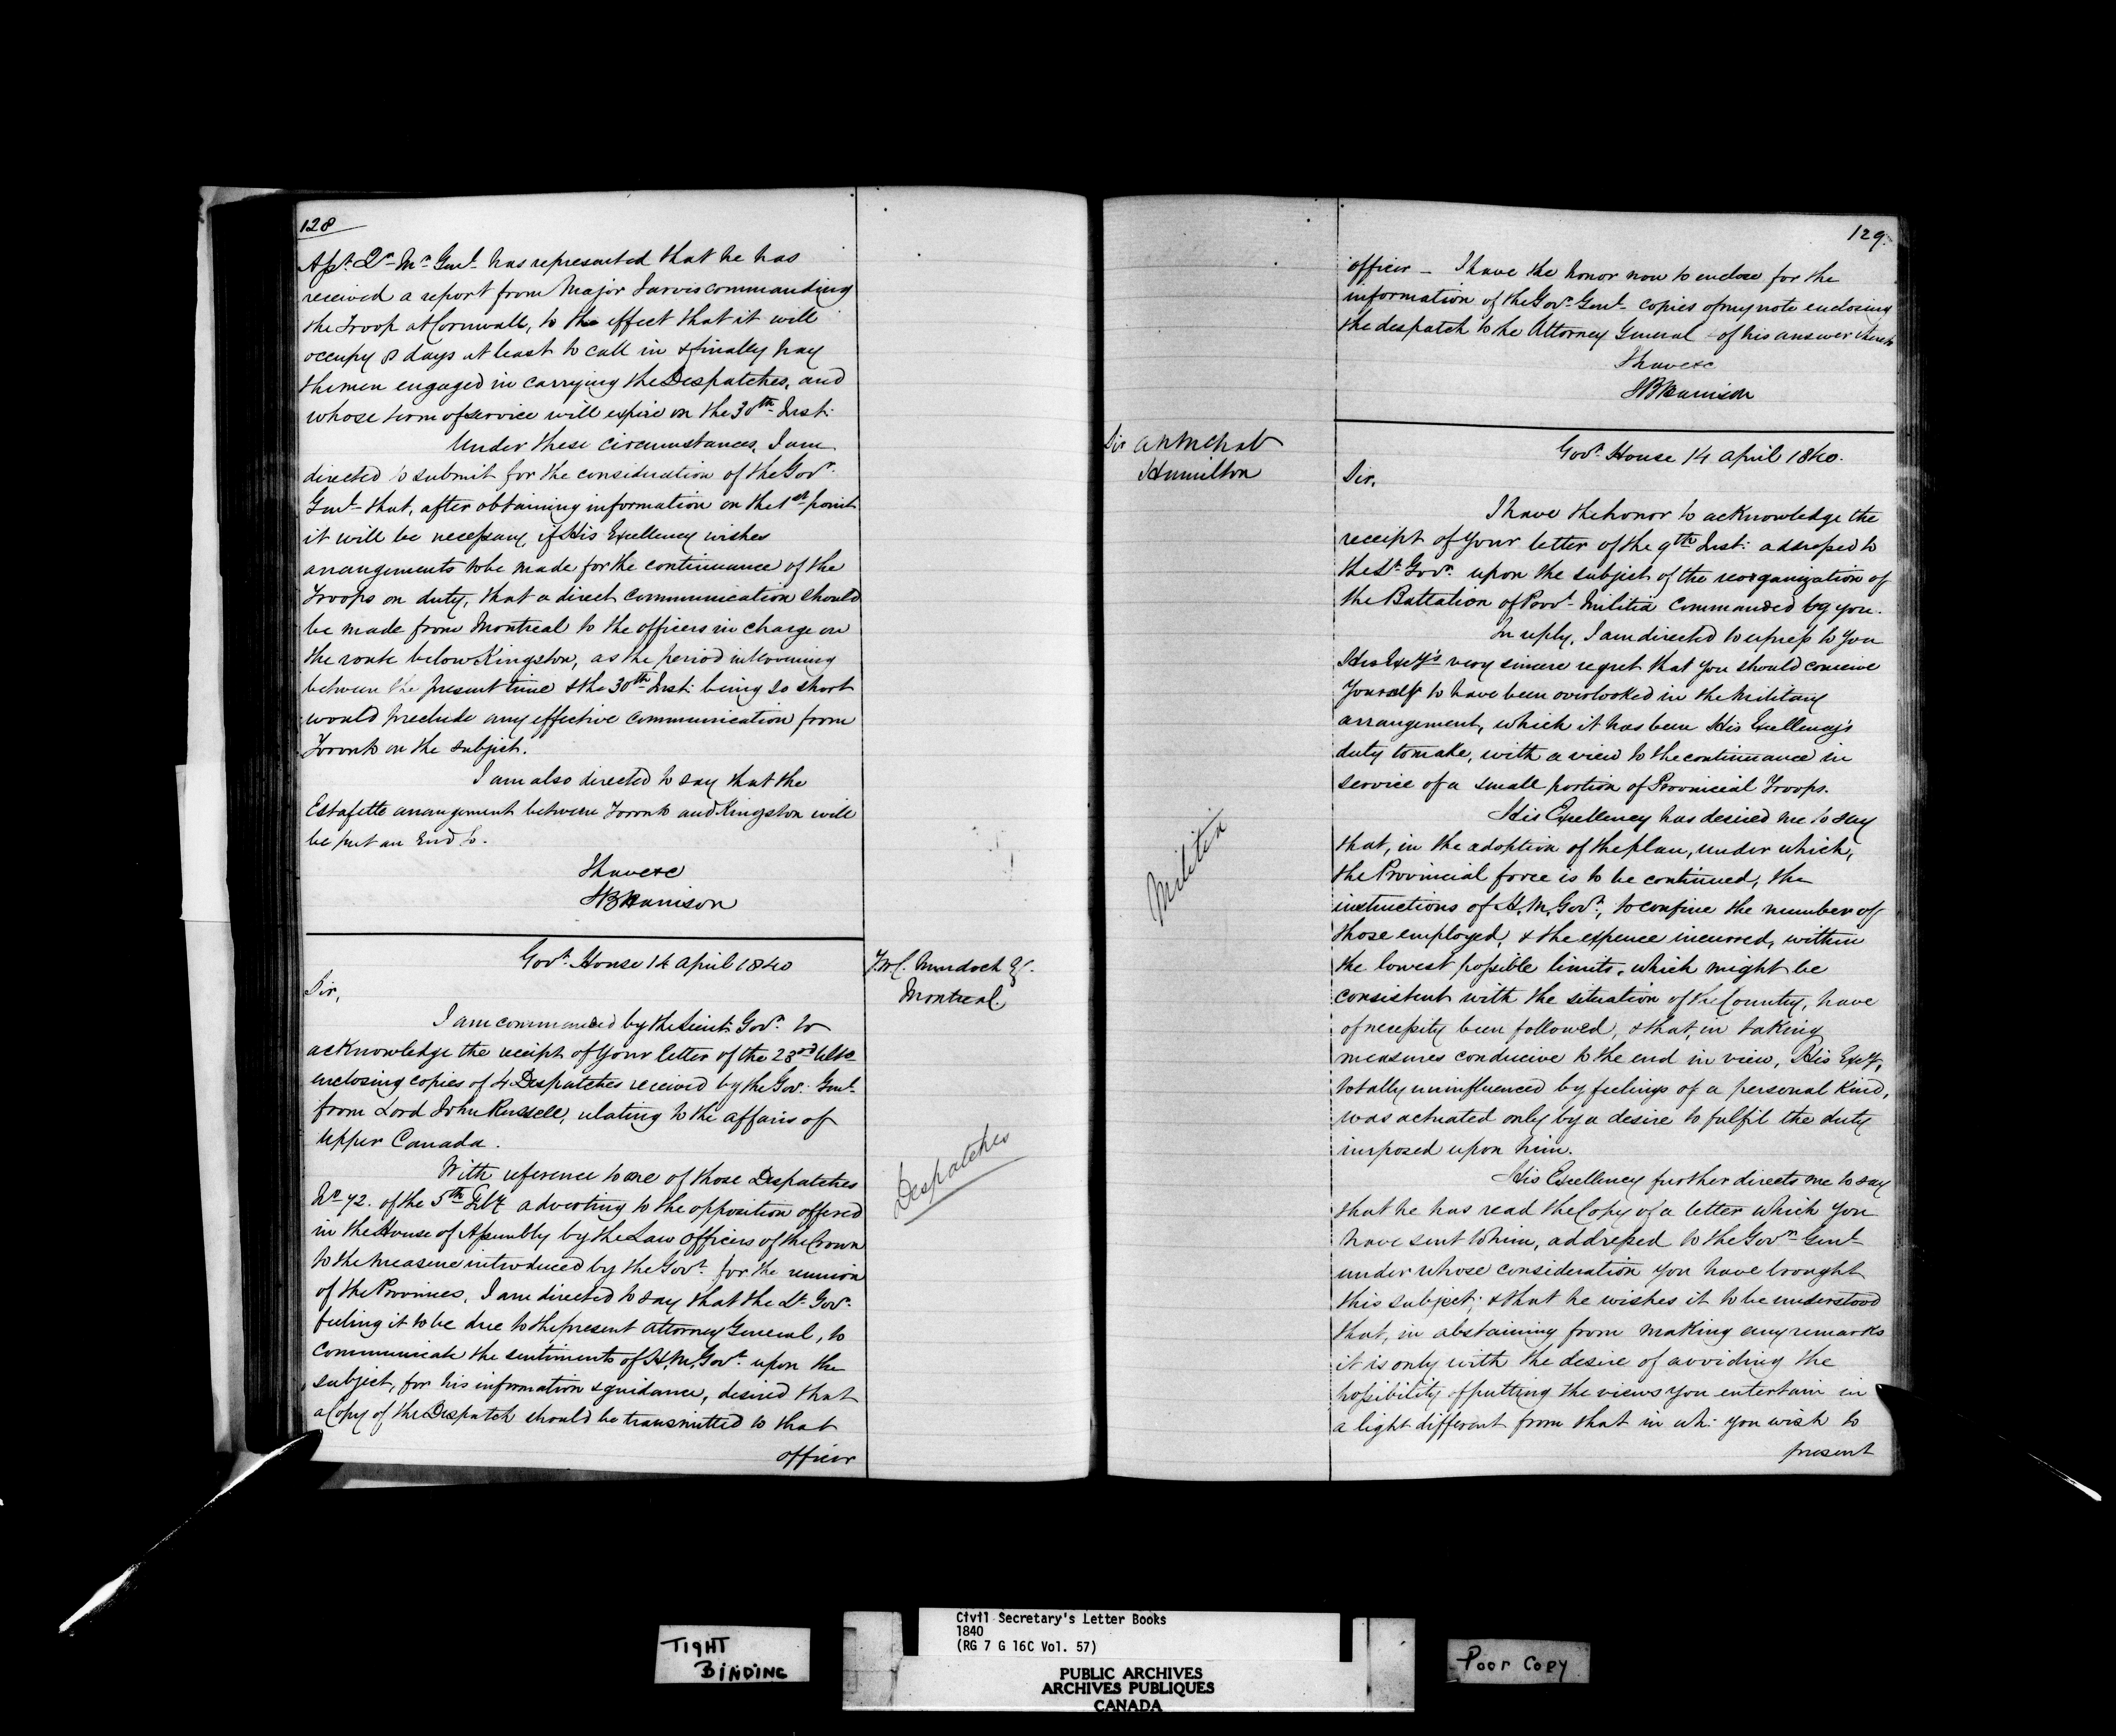 128
Asst. Qr. Mr. Genl. has represented that he has
received a report from Major Jarvis commanding
the Troop at Cornwall, to the effect that it will
occupy 8 days at least to call in & finally pay
the men engaged in carrying the Despatches, and
whose term of service will expire on the 30th Inst:
Under these circumstances, I am
directed to submit for the consideration of the Govr.
Genl. that, after obtaining information on the 1st point
it will be necessary, if His Excellency wishes
arrangements to be made for the continuance of the
Troops on duty, that a direct communication should
be made from Montreal to the officers in charge on
the route below Kingston, as the period intervening
between the present time & the 30th Inst: being so short
would preclude any effective communication from
Toronto on the subject.
I am also directed to say that the
Estafette arrangement between Toronto and Kingston will
be put an End to.
I have &c
SB Harrison
Govt. House 14 April 1840
T.W.C. Murdoch Esq.
Montreal.
Sir,
I am commanded by the Lieut: Govr. to
acknowledge the receipt of your letter of the 23rd Ulto
enclosing copies of 4 Despatches received by the Gov: Genl.
from Lord John Russell, relating to the affairs of
Upper Canada.
Despatches
With reference to one of those Despatches
No 72. of the 5th Feby adverting to the opposition offered
in the House of Assembly by the Law Officers of the Crown
to the measure introduced by the Govt. for the reunion
of the Provinces, I am directed to say that the Lt. Gov:
feeling it to be due to the present Attorney General, to
communicate the sentiments of H.M. Govt. upon the
subject, for his information & guidance, desired that
a Copy of the Despatch should be transmitted to that
officer
129.
officer – I have the honor now to enclose for the
information of the Govr. Genl. copies of my note enclosing
the despatch to the Attorney General & of his answer thereto
I have &c
SB Harrison
Sir A N McNab
Hamilton
Govt. House 14 April 1840.
Sir,
I have the honor to acknowledge the
receipt of your letter of the 9th Inst: addressed to
the Lt. Govr. upon the subject of the reorganization of
the Battalion of Provl. Militia commanded by you.
In reply, I am directed to express to you
His Excy's very sincere regret that you should conceive
yourself to have been overlooked in the Military
arrangement, which it has been His Excellency's
duty to make, with a view to the continuance in
service of a small portion of Provincial Troops.
Militia
His Excellency has desired me to say
that, in the adoption of the plan, under which,
the Provincial force is to be continued, the
instructions of H.M. Govt., to confine the number of
those employed, & the expence incurred, within
the lowest possible limits, which might be
consistent with the situation of the Country, have
of necessity been followed, & that, in taking
measures conducive to the end in view, His Excy,
totally uninfluenced by feelings of a personal kind,
was actuated only by a desire to fulfil the duty
imposed upon him.
His Excellency further directs me to say
that he has read the Copy of a letter which you
have sent to him, addressed to the Govr. Genl.
under whose consideration you have brought
this subject; & that he wishes it to be understood
that, in abstaining from making any remarks
it is only with the desire of avoiding the
possibility of putting the views you entertain in
a light different from that in wh: you wish to
present
TIGHT
BINDING
Civil Secretary's Letter Books
1840
(RG 7 G 16C Vol. 57)
PUBLIC ARCHIVES
ARCHIVES PUBLIQUES
CANADA
Poor Copy